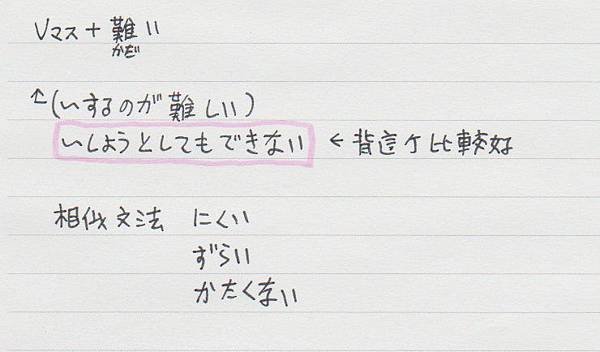 Vマス+難い
かだ
↑(いするのが難しい)
いしようとしてもできない ← 背這ケ比較好
相似文法 にくい
ずらい
かたくない